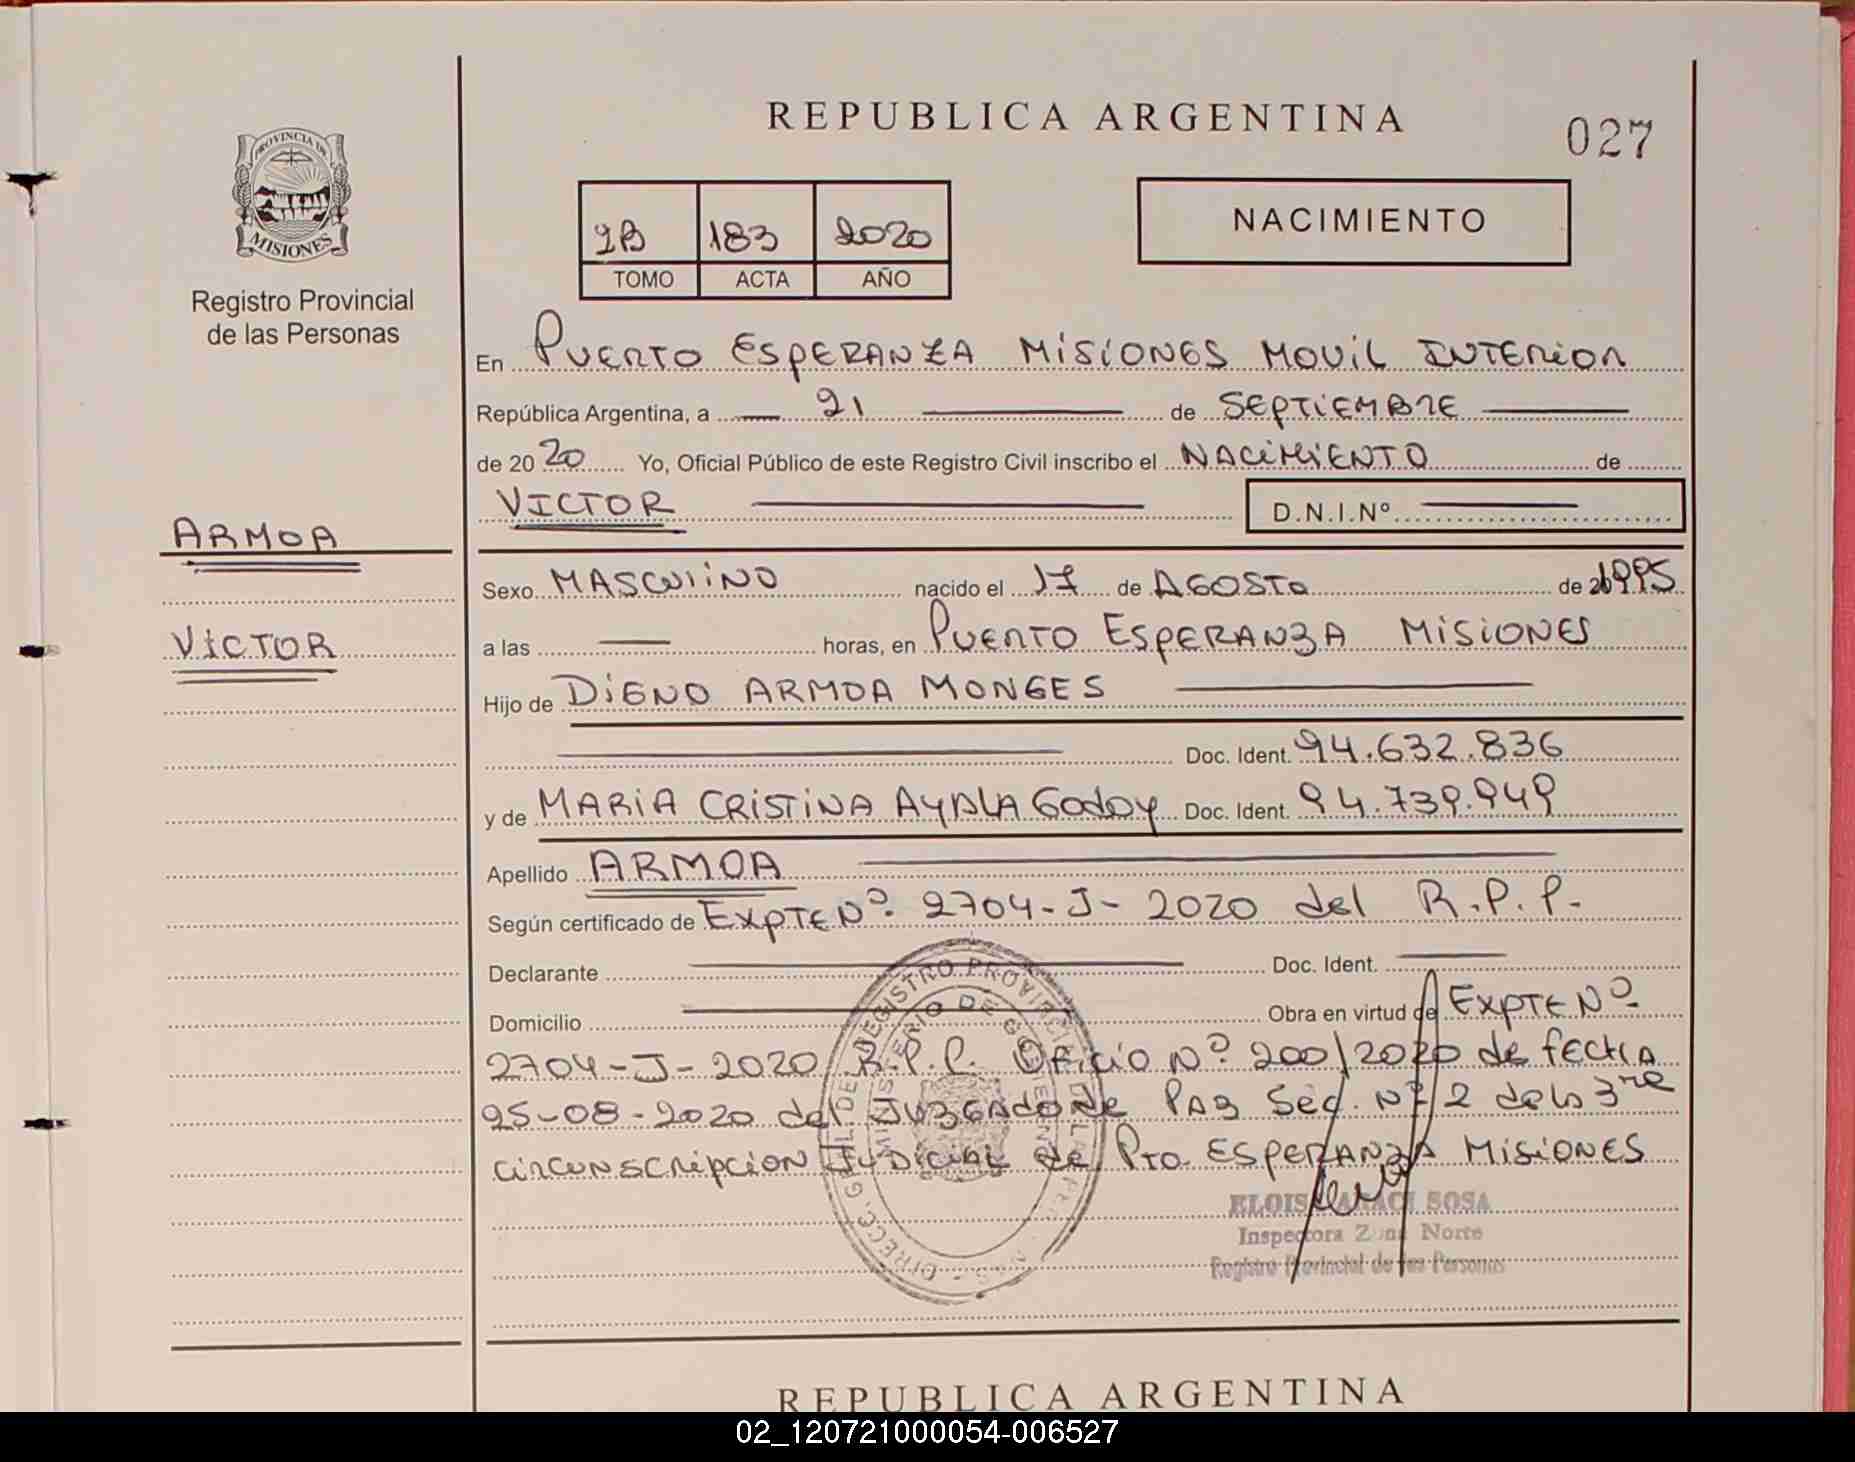 REPUBLICA ARGENTINA
027
PROVINCIA DE
MISIONES
Registro Provincial
de las Personas
2B 183 2020
TOMO ACTA AÑO
NACIMIENTO
En PUERTO ESPERANZA MISIONES MOVIL INTERIOR
República Argentina, a 21 de SEPTIEMBRE
de 20 20 Yo, Oficial Público de este Registro Civil inscribo el NACIMIENTO de
VICTOR D.N.I.Nº
ARMOA
Sexo MASCULINO nacido el 17 de AGOSTO de 1995
VICTOR
a las horas, en PUERTO ESPERANZA MISIONES
Hijo de DIGNO ARMOA MONGES
Doc. Ident. 94.632.836
y de MARIA CRISTINA AYALA GODOY Doc. Ident. 94.739.949
Apellido ARMOA
Según certificado de EXPTE Nº. 2704-J-2020 del R.P.P.
Declarante Doc. Ident.
Domicilio Obra en virtud de EXPTE Nº.
2704-J-2020 R.P.P. OFICIO Nº. 200/2020 de FECHA
25-08-2020 del JUZGADO DE PAZ Sec. Nº 2 de la 3ra
CIRCUNSCRIPCION JUDICIAL de Pto. ESPERANZA MISIONES
DIRECC. GRAL. DE REGISTRO PROVINCIAL DE LAS PERSONAS
MINISTERIO DE GOBIERNO
SOSA
Inspectora Zona Norte
Registro Provincial de las Personas
REPUBLICA ARGENTINA
02_120721000054-006527